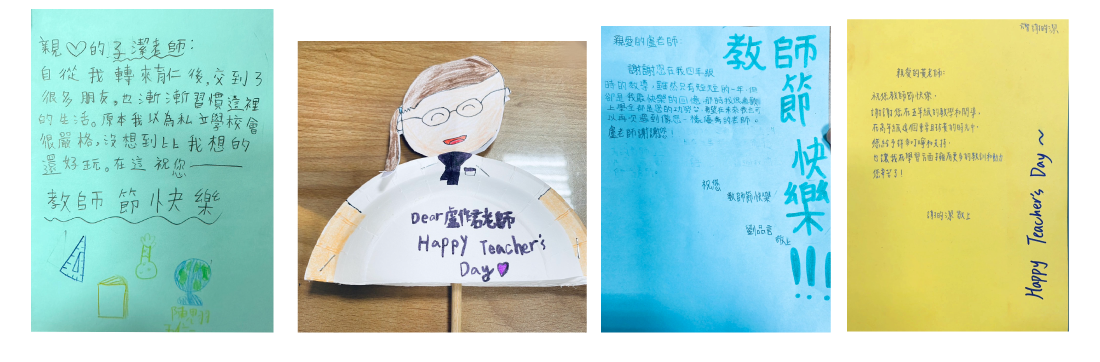 親♡的子潔老師：
自從我轉來育仁後，交到了
很多朋友。也漸漸習慣這裡
的生活。原本我以為私立學校會
很嚴格，沒想到比我想的
還好玩。在這祝您
教師節快樂
Dear盧作君老師
Happy Teacher's
Day
親愛的盧老師：
謝謝您在我四年級
時的教導，雖然只有短短的一年，但
卻是我最快樂的回憶，
以再次遇到像您一樣優秀的老師。
盧老師謝謝您！
祝您
教師節快樂
敬上
教師節快樂!!!
親愛的黃老師：
祝您教師節快樂，
謝謝您在五年級的教學和開導，
也讓我在學習方面
您辛苦了！
敬上
Happy Teacher's Day ~